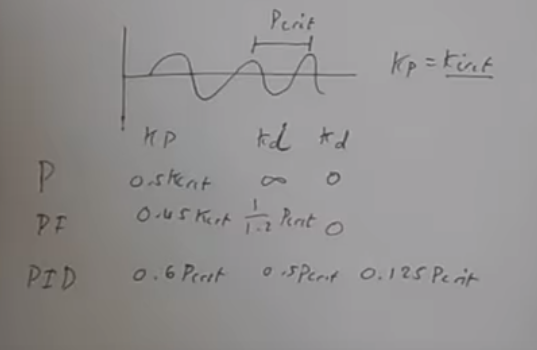 Pcrit
Kp = Kcrit
KP Kd Kd
P 0.5Kcrit ∞ 0
PI 0.45Kcrit 1/1.2 Pcrit 0
PID 0.6Pcrit 0.5Pcrit 0.125Pcrit